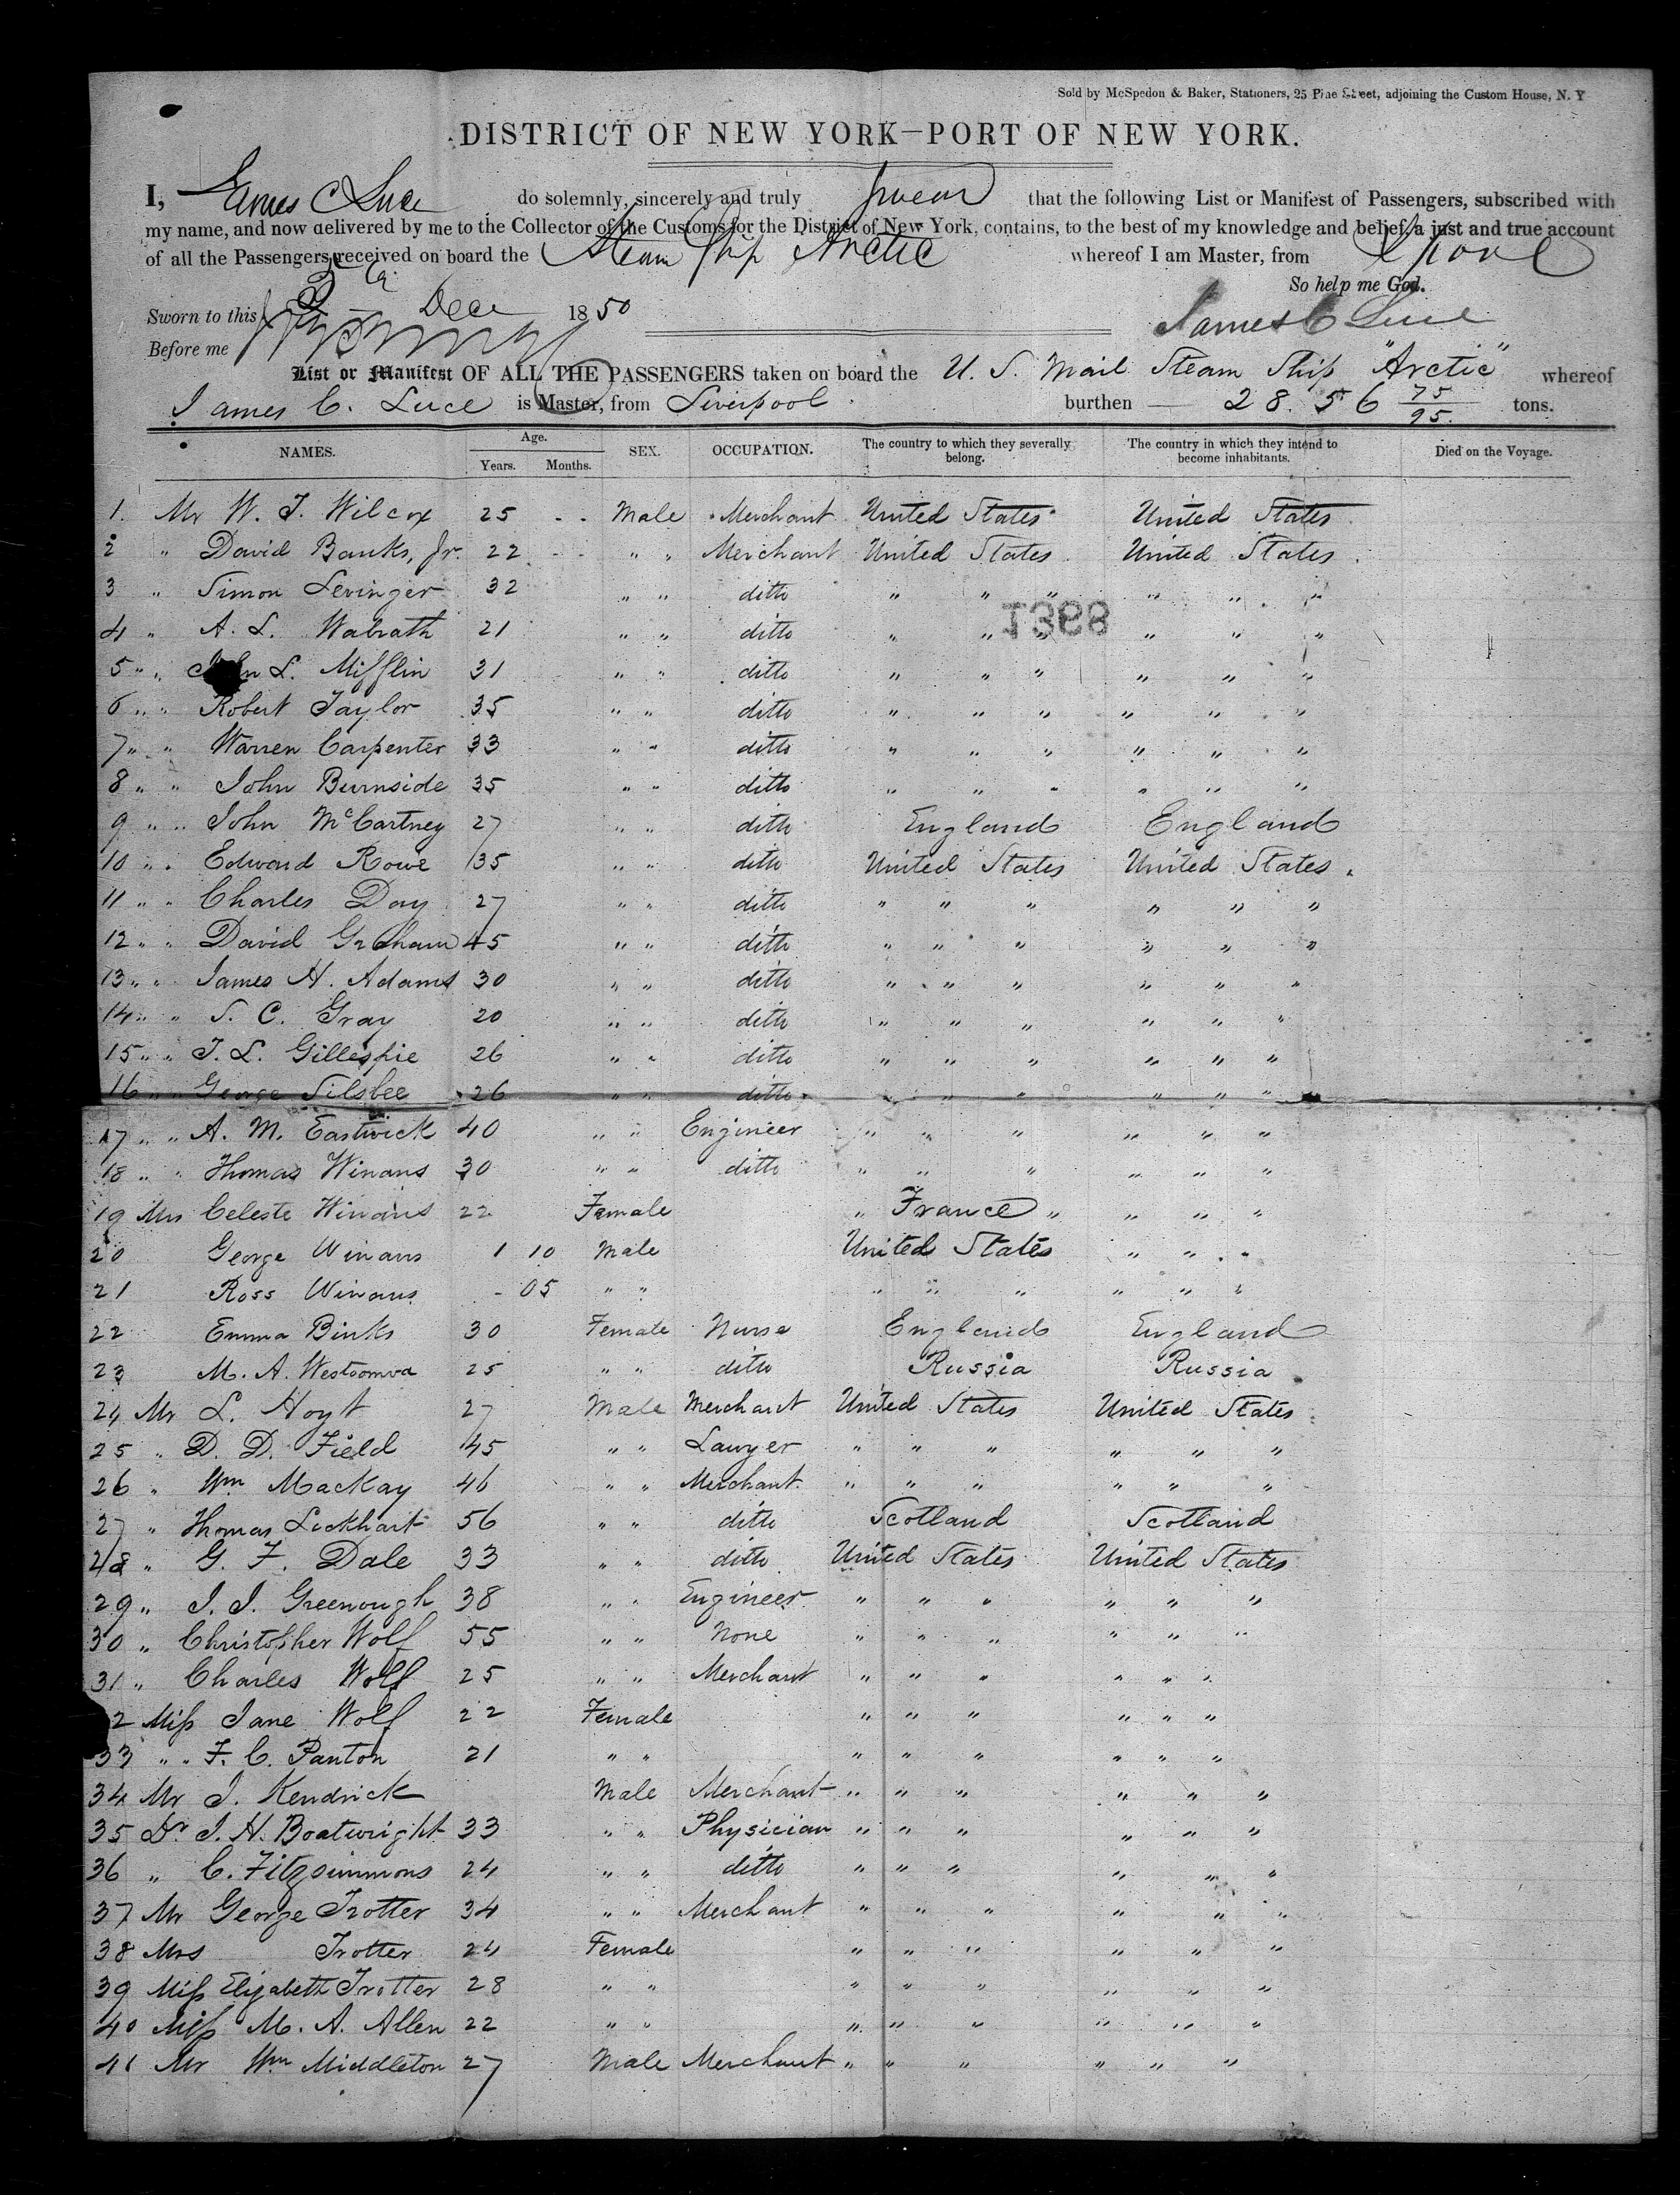 Sold by McSpedon & Baker, Stationers, 25 Pine Street, adjoining the Custom House, N. Y
DISTRICT OF NEW YORK—PORT OF NEW YORK.
I, James C Luce do solemnly, sincerely and truly swear that the following List or Manifest of Passengers, subscribed with
my name, and now delivered by me to the Collector of the Customs for the District of New York, contains, to the best of my knowledge and belief, a just and true account
of all the Passengers received on board the Steam Ship Arctic whereof I am Master, from Lpool
So help me God.
Sworn to this Dec 1850
James C Luce
Before me
List or Manifest OF ALL THE PASSENGERS taken on board the U. S. Mail Steam Ship "Arctic" whereof
James C. Luce is Master, from Liverpool. burthen — 28.56 75/95 tons.
NAMES. Age. Years. Months. SEX. OCCUPATION. The country to which they severally belong. The country in which they intend to become inhabitants. Died on the Voyage.
1. Mr W. T. Wilcox 25 - - Male Merchant United States United States
2 " David Banks, Jr. 22 - - " " Merchant United States United States
3 " Simon Levinger 32 " " ditto " " " " " "
1368
4 " A. L. Walrath 21 " " ditto " " " " " "
5 " " John L. Mifflin 31 " " ditto " " " " " "
6 " " Robert Taylor 35 " " ditto " " " " " "
7 " " Warren Carpenter 33 " " ditto " " " " " "
8 " " John Burnside 35 " " ditto " " " " " "
9 " " John McCartney 27 " " ditto England England
10 " " Edward Rowe 35 " " ditto United States United States.
11 " " Charles Day 27 " " ditto " " " " " "
12 " " David Graham 45 " " ditto " " " " " "
13 " " James H. Adams 30 " " ditto " " " " " "
14 " " S. C. Gray 20 " " ditto " " " " " "
15 " " T. L. Gillespie 26 " " ditto " " " " " "
16 " " George Silsbee 26 " " ditto " " " " " "
17 " " A. M. Eastwick 40 " " Engineer " " " " " "
18 " " Thomas Winans 30 " " ditto " " " " " "
19 Mrs Celeste Winans 22 Female " France " " " "
20 George Winans 1 10 Male United States " " "
21 Ross Winans - 05 " " " " " " " "
22 Emma Binks 30 Female Nurse England England
23 M. A. Westoomva 25 " " ditto Russia Russia.
24 Mr L. Hoyt 27 Male Merchant United States United States
25 " D. D. Field 45 " " Lawyer " " " " " "
26 " Wm MacKay 46 " " Merchant " " " " " "
27 " Thomas Lockhart 56 " " ditto Scotland Scotland
28 " G. F. Dale 33 " " ditto United States United States
29 " J. J. Greenough 38 " " Engineer " " " " " "
30 " Christopher Wolf 55 " " None " " " " " "
31 " Charles Wolf 25 " " Merchant " " " " " "
2 Miss Jane Wolf 22 Female " " " " " "
33 " " F. C. Panton 21 " " " " " " " "
34 Mr J. Kendrick Male Merchant " " " " " "
35 Dr J. H. Boatwright 33 " " Physician " " " " " "
36 " C. Fitzsimmons 24 " " ditto " " " " " "
37 Mr George Trotter 34 " " Merchant " " " " " "
38 Mrs Trotter 24 Female " " " " " "
39 Miss Elizabeth Trotter 28 " " " " " " " "
40 Miss M. A. Allen 22 " " " " " " " "
41 Mr Wm Middleton 27 Male Merchant " " " " " "